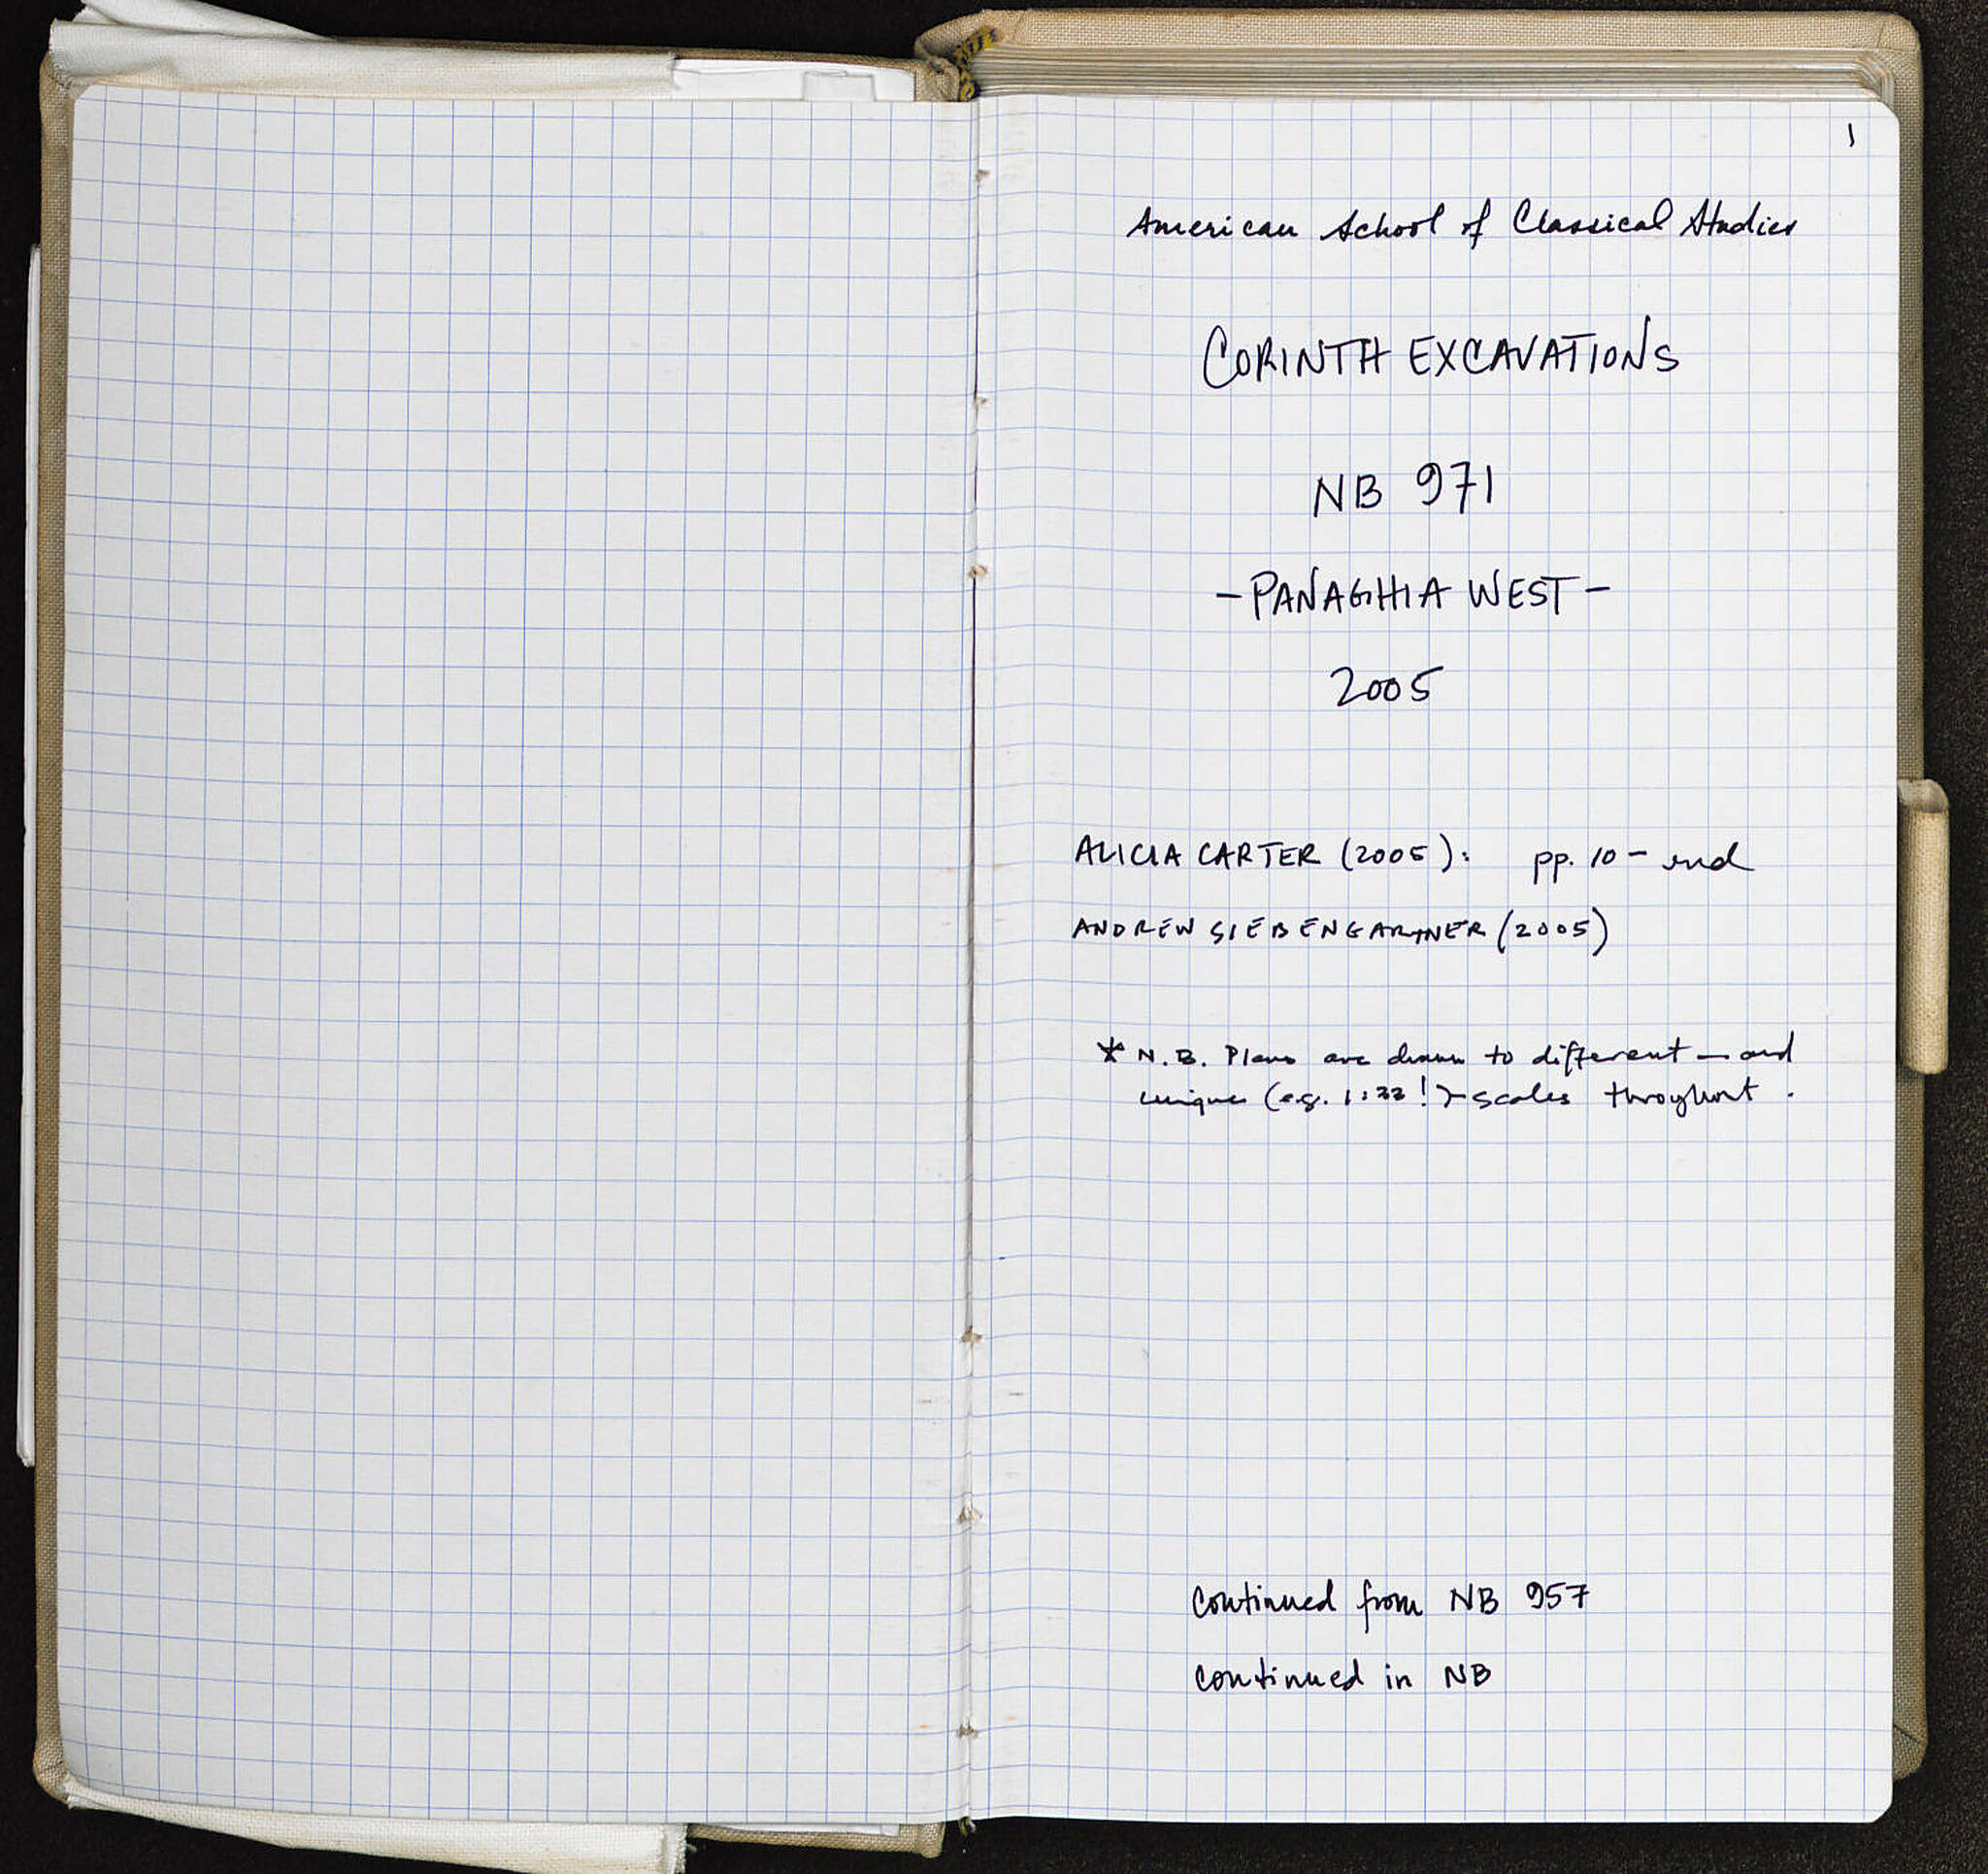 1
American School of Classical Studies
CORINTH EXCAVATIONS
NB 971
- PANAGHIA WEST -
2005
ALICIA CARTER (2005): pp. 10 - end
ANDREW SIEBENGARTNER (2005)
* N.B. Plans are drawn to different — and
unique (e.g. 1:33!) - scales throughout.
continued from NB 957
continued in NB